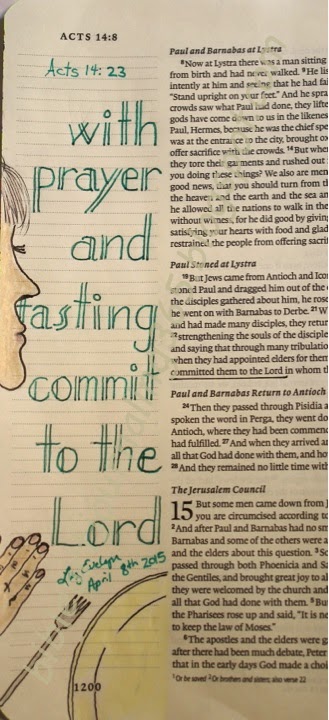 ACTS 14:8
Acts 14:23
with
prayer
and
fasting
commit
to the
Lord
Liz Evelyn
April 8th 2015
1200
Paul and Barnabas at Lystra
8Now at Lystra there was a man sitting
from birth and had never walked. 9He
intently at him and seeing that he had
"Stand upright on your feet." And he
crowds saw what Paul had done, they
gods have come down to us in the
Paul, Hermes, because he was the chief
was at the entrance to the city, brought
offer sacrifice with the crowds. 14But
they tore their garments and rushed out
you doing these things? We also are men
good news, that you should turn from
the heaven and the earth and the sea
he allowed all the nations to walk in
without witness, for he did good by
satisfying your hearts with food and
restrained the people from offering
Paul Stoned at Lystra
19But Jews came from Antioch and
stoned Paul and dragged him out of the
the disciples gathered about him, he rose
he went on with Barnabas to Derbe. 21
and had made many disciples, they
22strengthening the souls of the
and saying that through many
when they had appointed elders for
committed them to the Lord in whom
Paul and Barnabas Return to Antioch
24Then they passed through Pisidia
spoken the word in Perga, they went
Antioch, where they had been
had fulfilled. 27And when they arrived
all that God had done with them, and
28And they remained no little time with
The Jerusalem Council
15 But some men came down from
you are circumcised according to
2And after Paul and Barnabas had no
Barnabas and some of the others were
and the elders about this question. 3
passed through both Phoenicia and
the Gentiles, and brought great joy to
they were welcomed by the church and
all that God had done with them. 5
the Pharisees rose up and said, "It is
to keep the law of Moses."
6The apostles and the elders were
after there had been much debate, Peter
that in the early days God made a
1 Or be saved 2 Or brothers and sisters; also verse 22